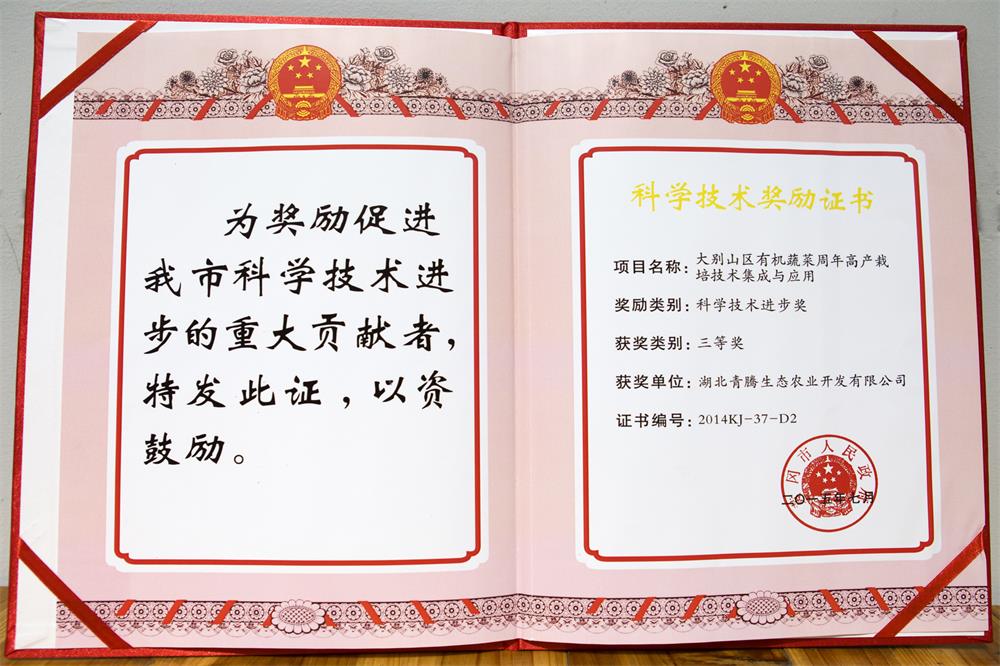 为奖励促进
我市科学技术进
步的重大贡献者，
特发此证，以资
鼓励。
科学技术奖励证书
项目名称：大别山区有机蔬菜周年高产栽
培技术集成与应用
奖励类别：科学技术进步奖
获奖类别：三等奖
获奖单位：湖北青腾生态农业开发有限公司
证书编号：2014KJ-37-D2
冈市人民政府
二〇一五年七月